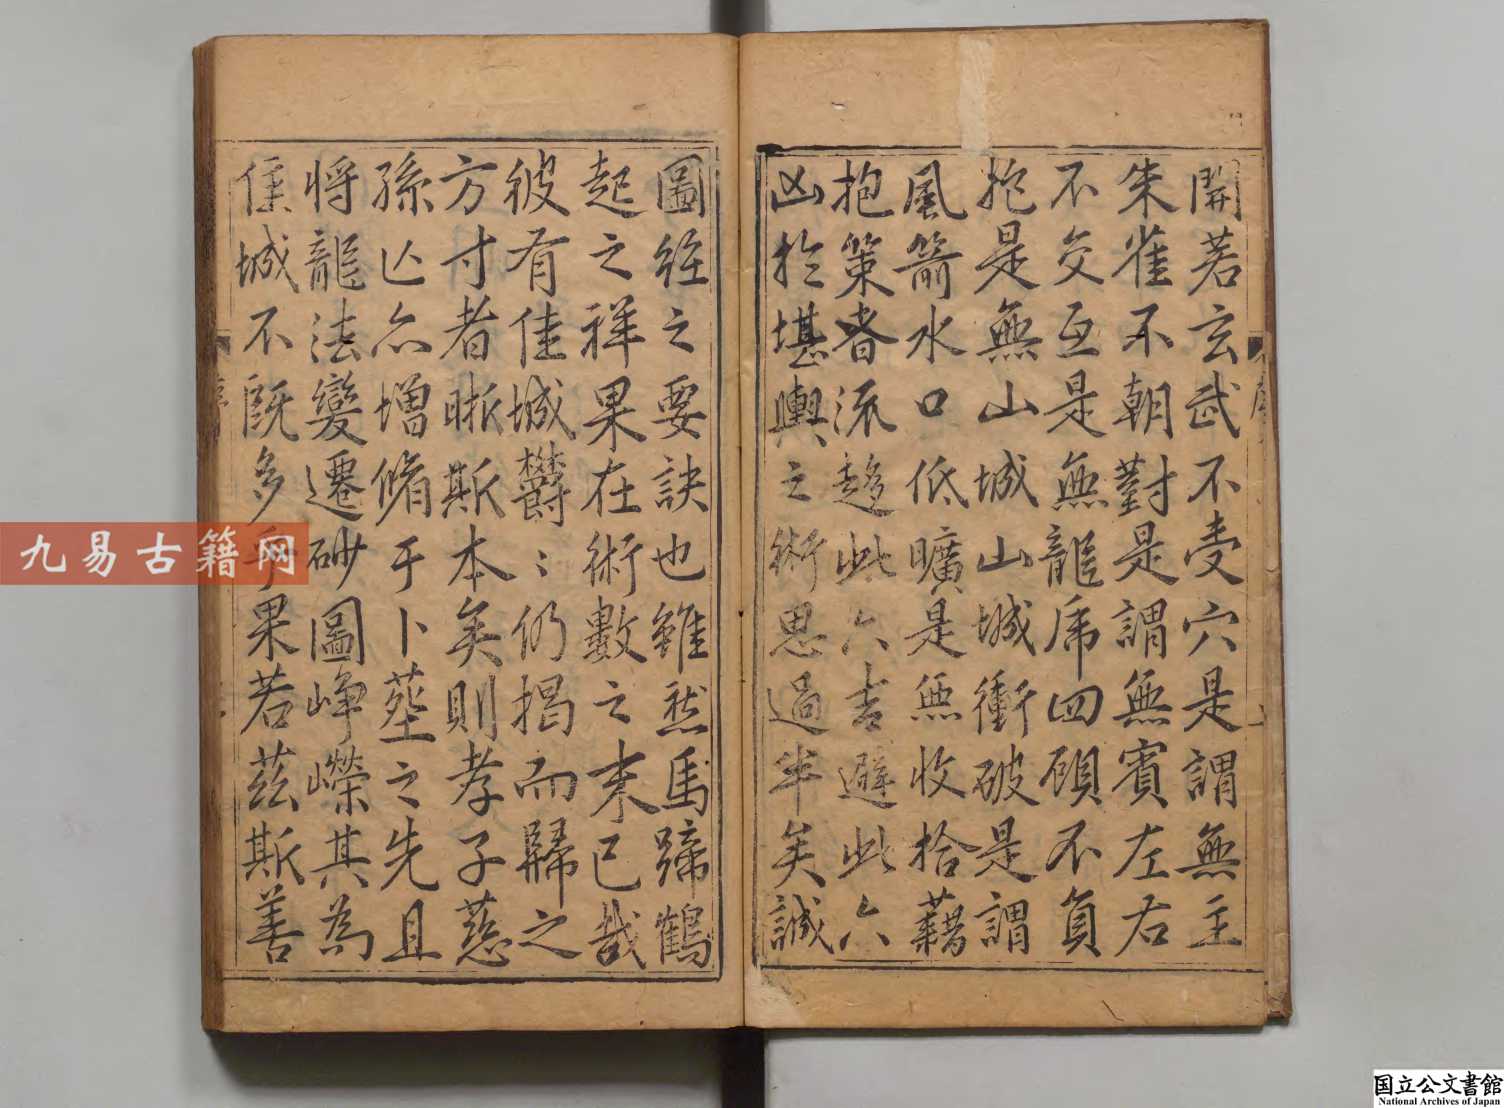 開若玄武不受穴是謂無主
朱雀不朝對是謂無賓左右
不交亙是無龍虎四顧不負
抱是無山城山城衝破是謂
風箭水口低曠是無收拾藉
抱策者流趨此六吉避此六
凶於堪輿之術思過半矣誠
圖經之要訣也雖然馬蹄鶴
起之祥果在術數之末已哉
彼有佳城欝〻仍揭而歸之
方寸者眎斯本矣則孝子慈
孫亡亦增脩于卜塟之先且
將龍法變遷砂圖崢嶸其為
佳城不既多乎果若茲斯善
九易古籍网
国立公文書館
National Archives of Japan